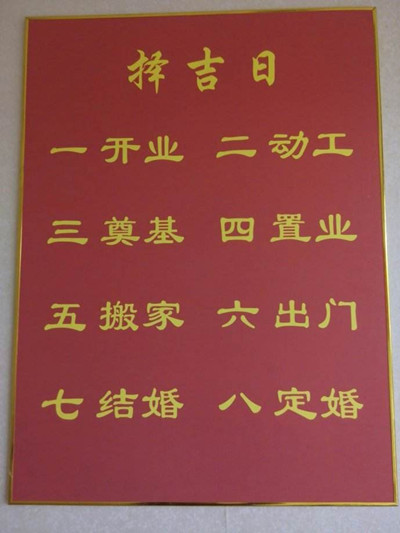 择吉日
一开业 二动工
三奠基 四置业
五搬家 六出门
七结婚 八定婚